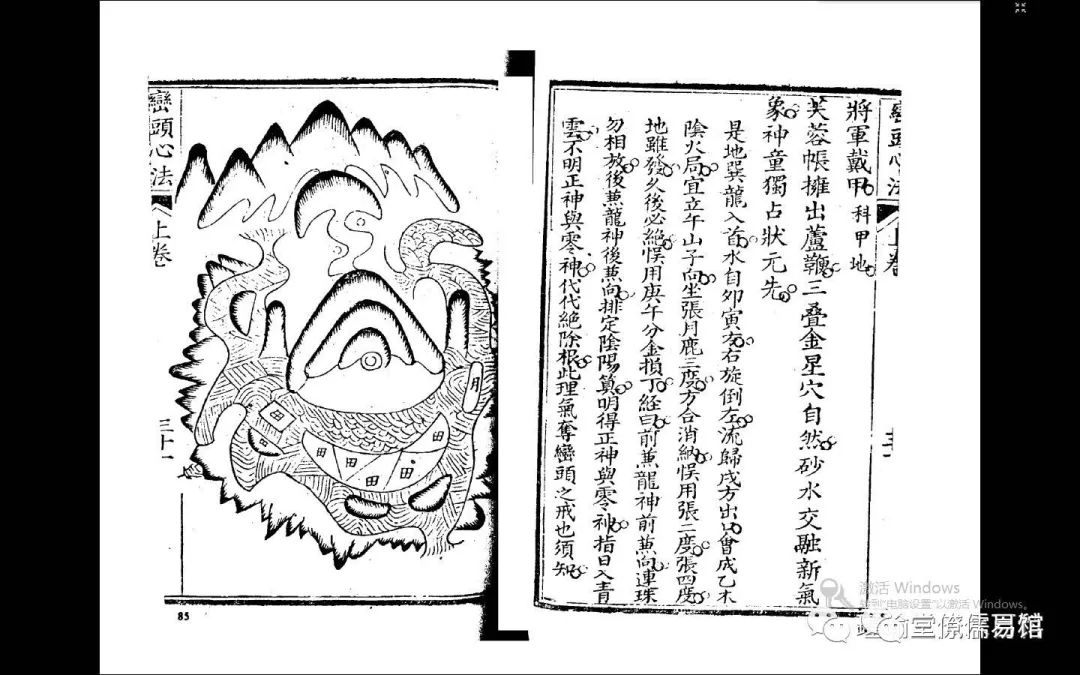 巒頭心法
上卷
將軍戴甲 科甲地
芙蓉帳擁出蘆鞭三叠金星穴自然砂水交融新氣
象神童獨占狀元先
是地巽龍入首水自夘寅左右旋倒左流歸戌方出口會成乙木
陰火局宜立午山子向坐張月鹿三度方合消納悮用張二度張四度
地雖發久後必絶悮用庚午分金損丁經曰前蒹龍神前蒹向連珠
勿相放後蒹龍神後蒹向排定陰陽算明得正神與零神指日入青
雲不明正神與零神代代絶除根此理氣奪巒頭之戒也須知
巒頭心法
上卷
三十一
月
田
田
田
田
田
田
田
85
激活 Windows
转到"电脑设置"以激活 Windows。
堂僚儒易馆